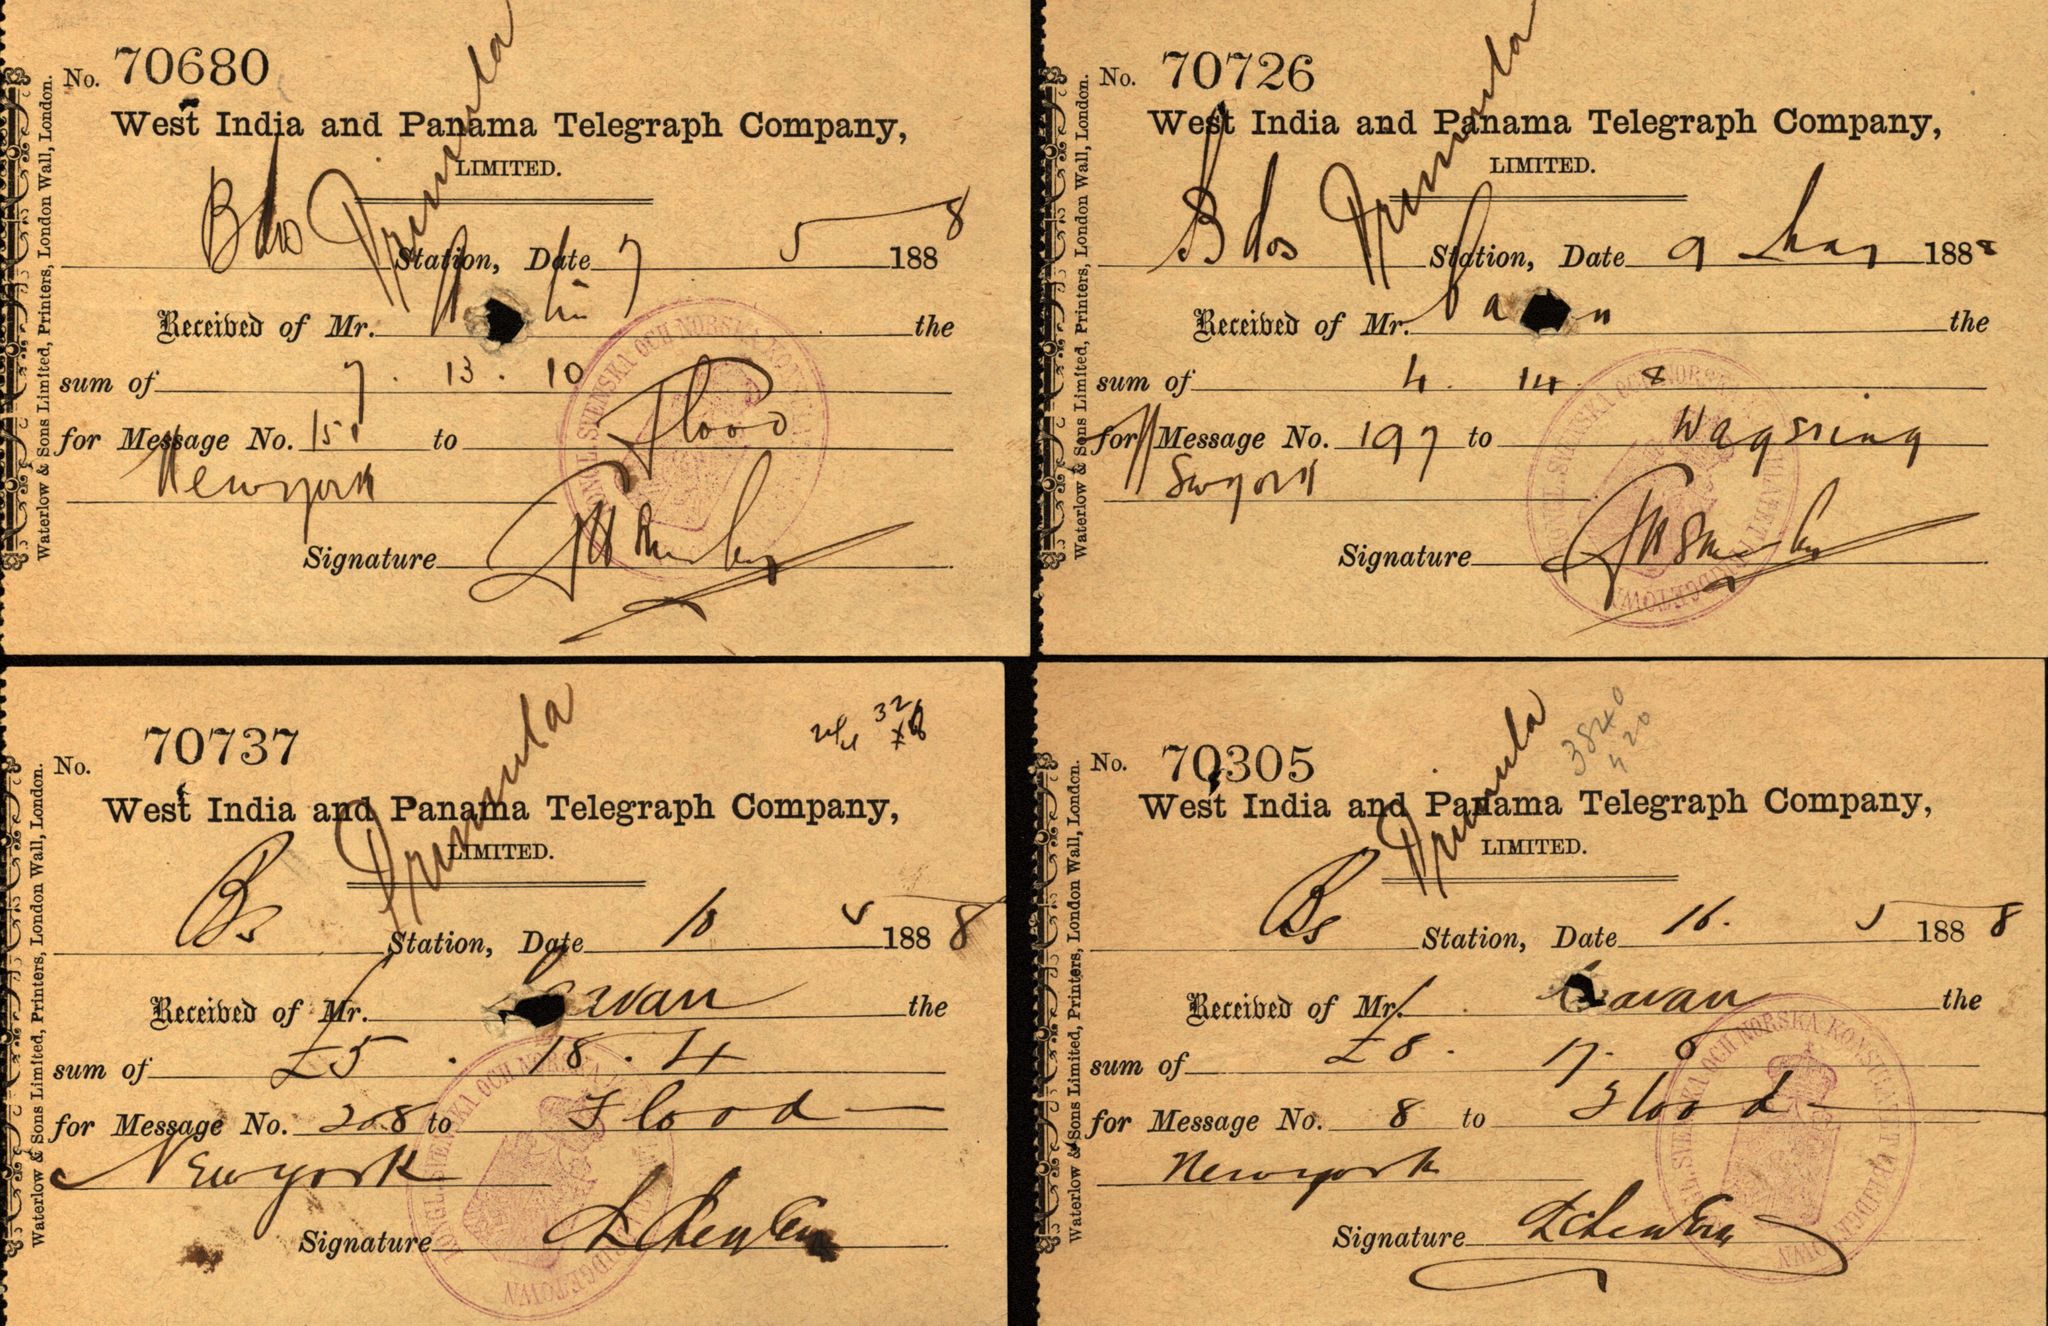 No. 70680
West India and Panama Telegraph Company,
LIMITED.
Primula
Bdos Station, Date 7 5 1888
Received of Mr. the
sum of 7. 13. 10
for Message No. to Flood
Newyork
Signature
Waterlow & Sons Limited, Printers, London Wall, London.
KONGL. SVENSKA OCH NORSKA KONSULATET I BRIDGETOWN
No. 70726
West India and Panama Telegraph Company,
LIMITED.
Primula
Bdos Station, Date 9 May 188
Received of Mr. the
sum of 4. 14. 8
for Message No. 197 to
Signature
Waterlow & Sons Limited, Printers, London Wall, London.
KONGL. SVENSKA OCH NORSKA KONSULATET I BRIDGETOWN
No. 70737
West India and Panama Telegraph Company,
LIMITED.
Primula
Bs Station, Date 10 5 1888
Received of Mr. the
sum of £5. 18. 4
for Message No. 208 to Flood
Newyork
Signature
Waterlow & Sons Limited, Printers, London Wall, London.
KONGL. SVENSKA OCH NORSKA KONSULATET I BRIDGETOWN
No. 70305
38240
West India and Panama Telegraph Company,
LIMITED.
Primula
Bs Station, Date 16. 5 1888
Received of Mr. Gavan the
sum of £8. 17. 6
for Message No. 8 to Flood
Newyork
Signature
Waterlow & Sons Limited, Printers, London Wall, London.
KONGL. SVENSKA OCH NORSKA KONSULATET I BRIDGETOWN